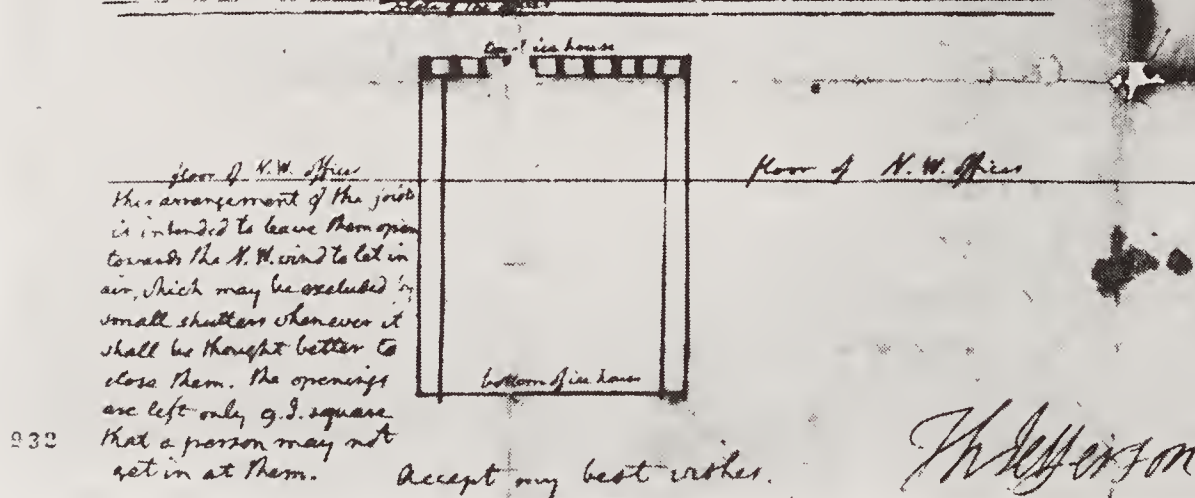 top of ice house
floor of N.W. offices
floor of N. W. offices
this arrangement of the joists
is intended to leave them open
towards the N.W. wind to let in
air, which may be excluded by
small shutters whenever it
shall be thought better to
close them. the openings
are left only 9.I. square
that a person may not
get in at them.
bottom of ice house
932
Accept my best wishes.
Th Jefferson